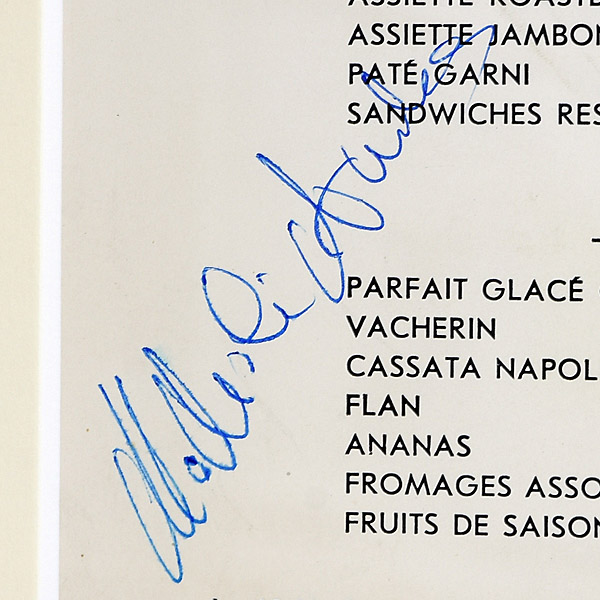 ASSIETTE ROASTB
ASSIETTE JAMBON
PATÉ GARNI
SANDWICHES RES
PARFAIT GLACÉ
VACHERIN
CASSATA NAPOL
FLAN
ANANAS
FROMAGES ASSO
FRUITS DE SAISON